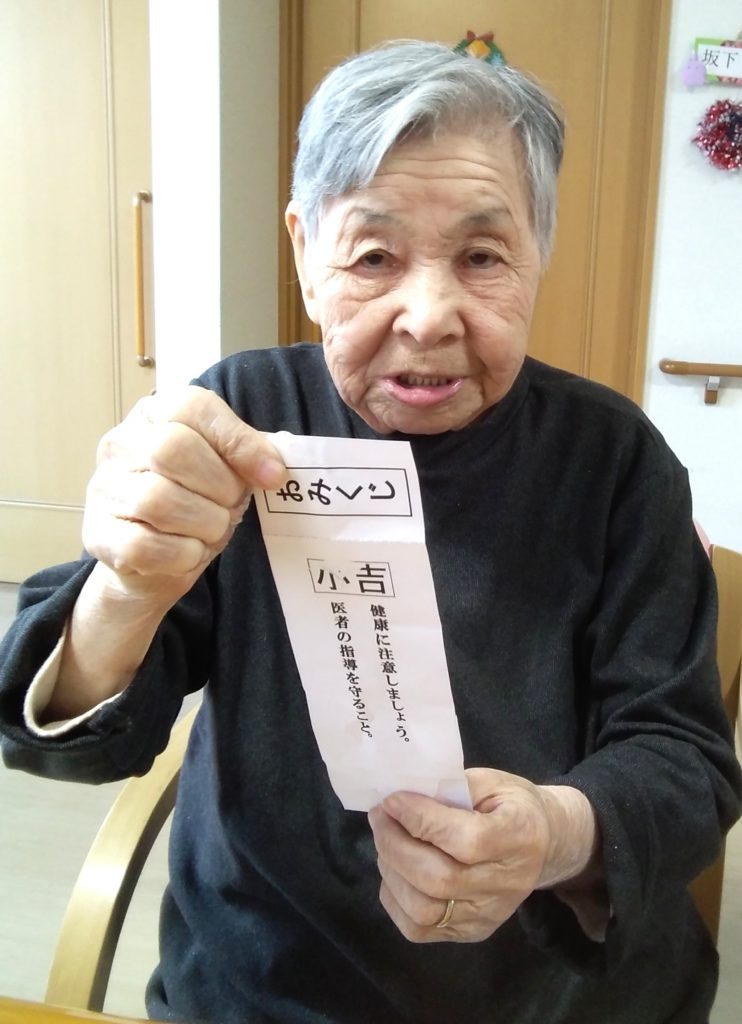 おみくじ
小吉
健康に注意しましょう。
医者の指導を守ること。
坂下